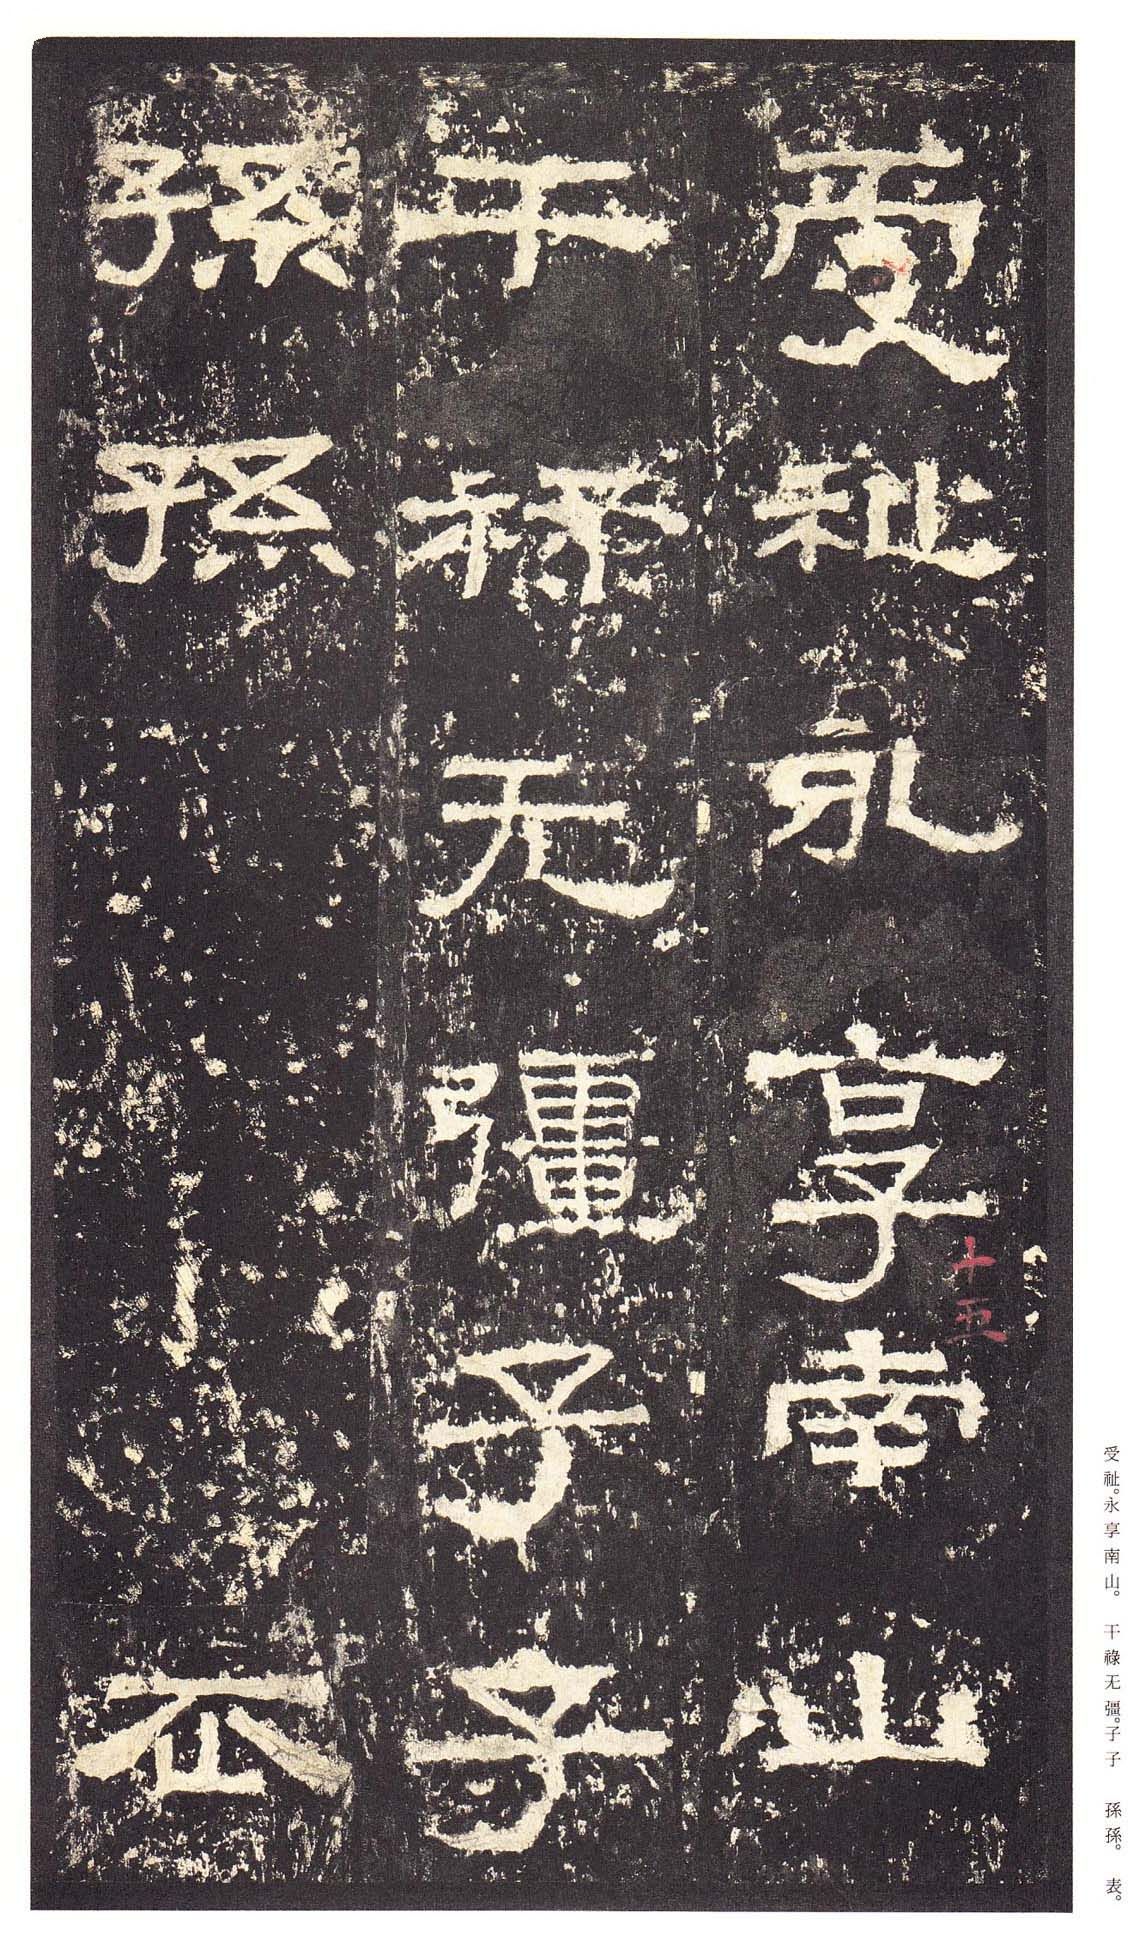 受祉永享南山
干祿无彊子子
孫孫
十五
受祉。永享南山。 干祿无彊。子子 孫孫。 表。